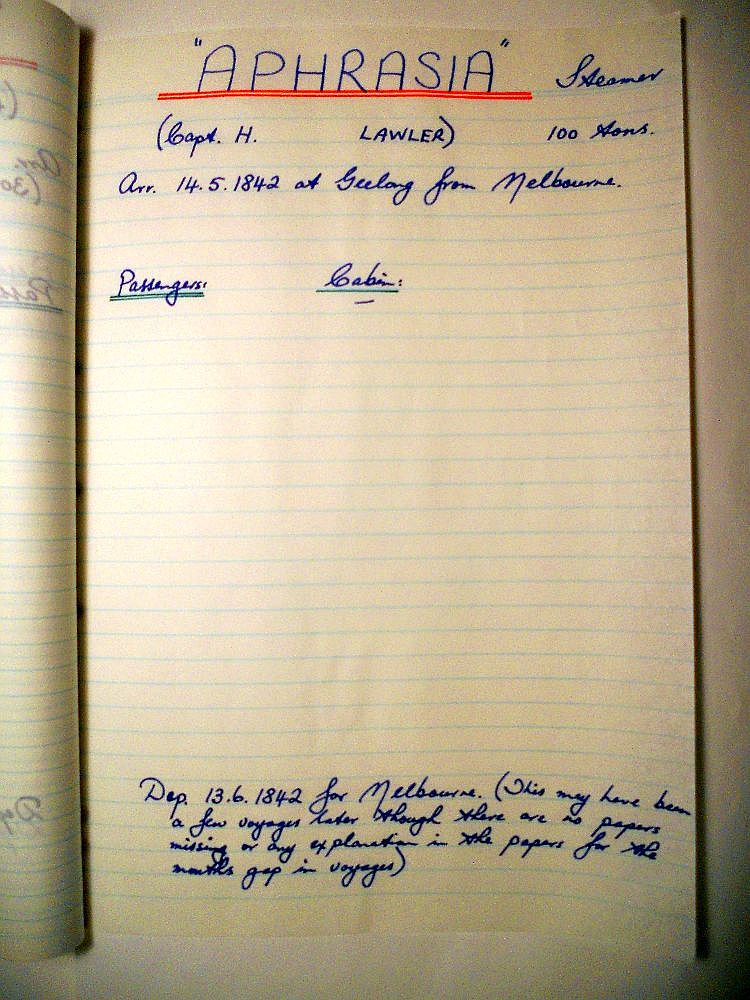 "APHRASIA" Steamer
(Capt. H. LAWLER) 100 tons.
Arr. 14.5.1842 at Geelong from Melbourne.
Passengers: Cabin:
Dep. 13.6.1842 for Melbourne. (This may have been
a few voyages later though there are no papers
missing or any explanation in the papers for the
months gap in voyages)